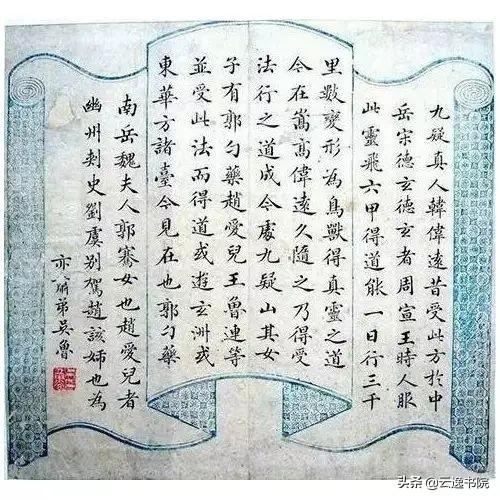 九疑真人韓偉遠昔受此方於中
岳宋德玄德玄者周宣王時人服
此靈飛六甲得道能一日行三千
里數變形為鳥獸得真靈之道
今在嵩高偉遠久隨之乃得受
法行之道成今處九疑山其女
子有郭勺藥趙愛兒王魯連等
並受此法而得道或遊玄洲或
東華方諸臺今見在也郭勺藥
南岳魏夫人郭騫女也趙愛兒者
幽州刺史劉虞別駕趙該姊也為
弟吳魯
头条 @云逸书院